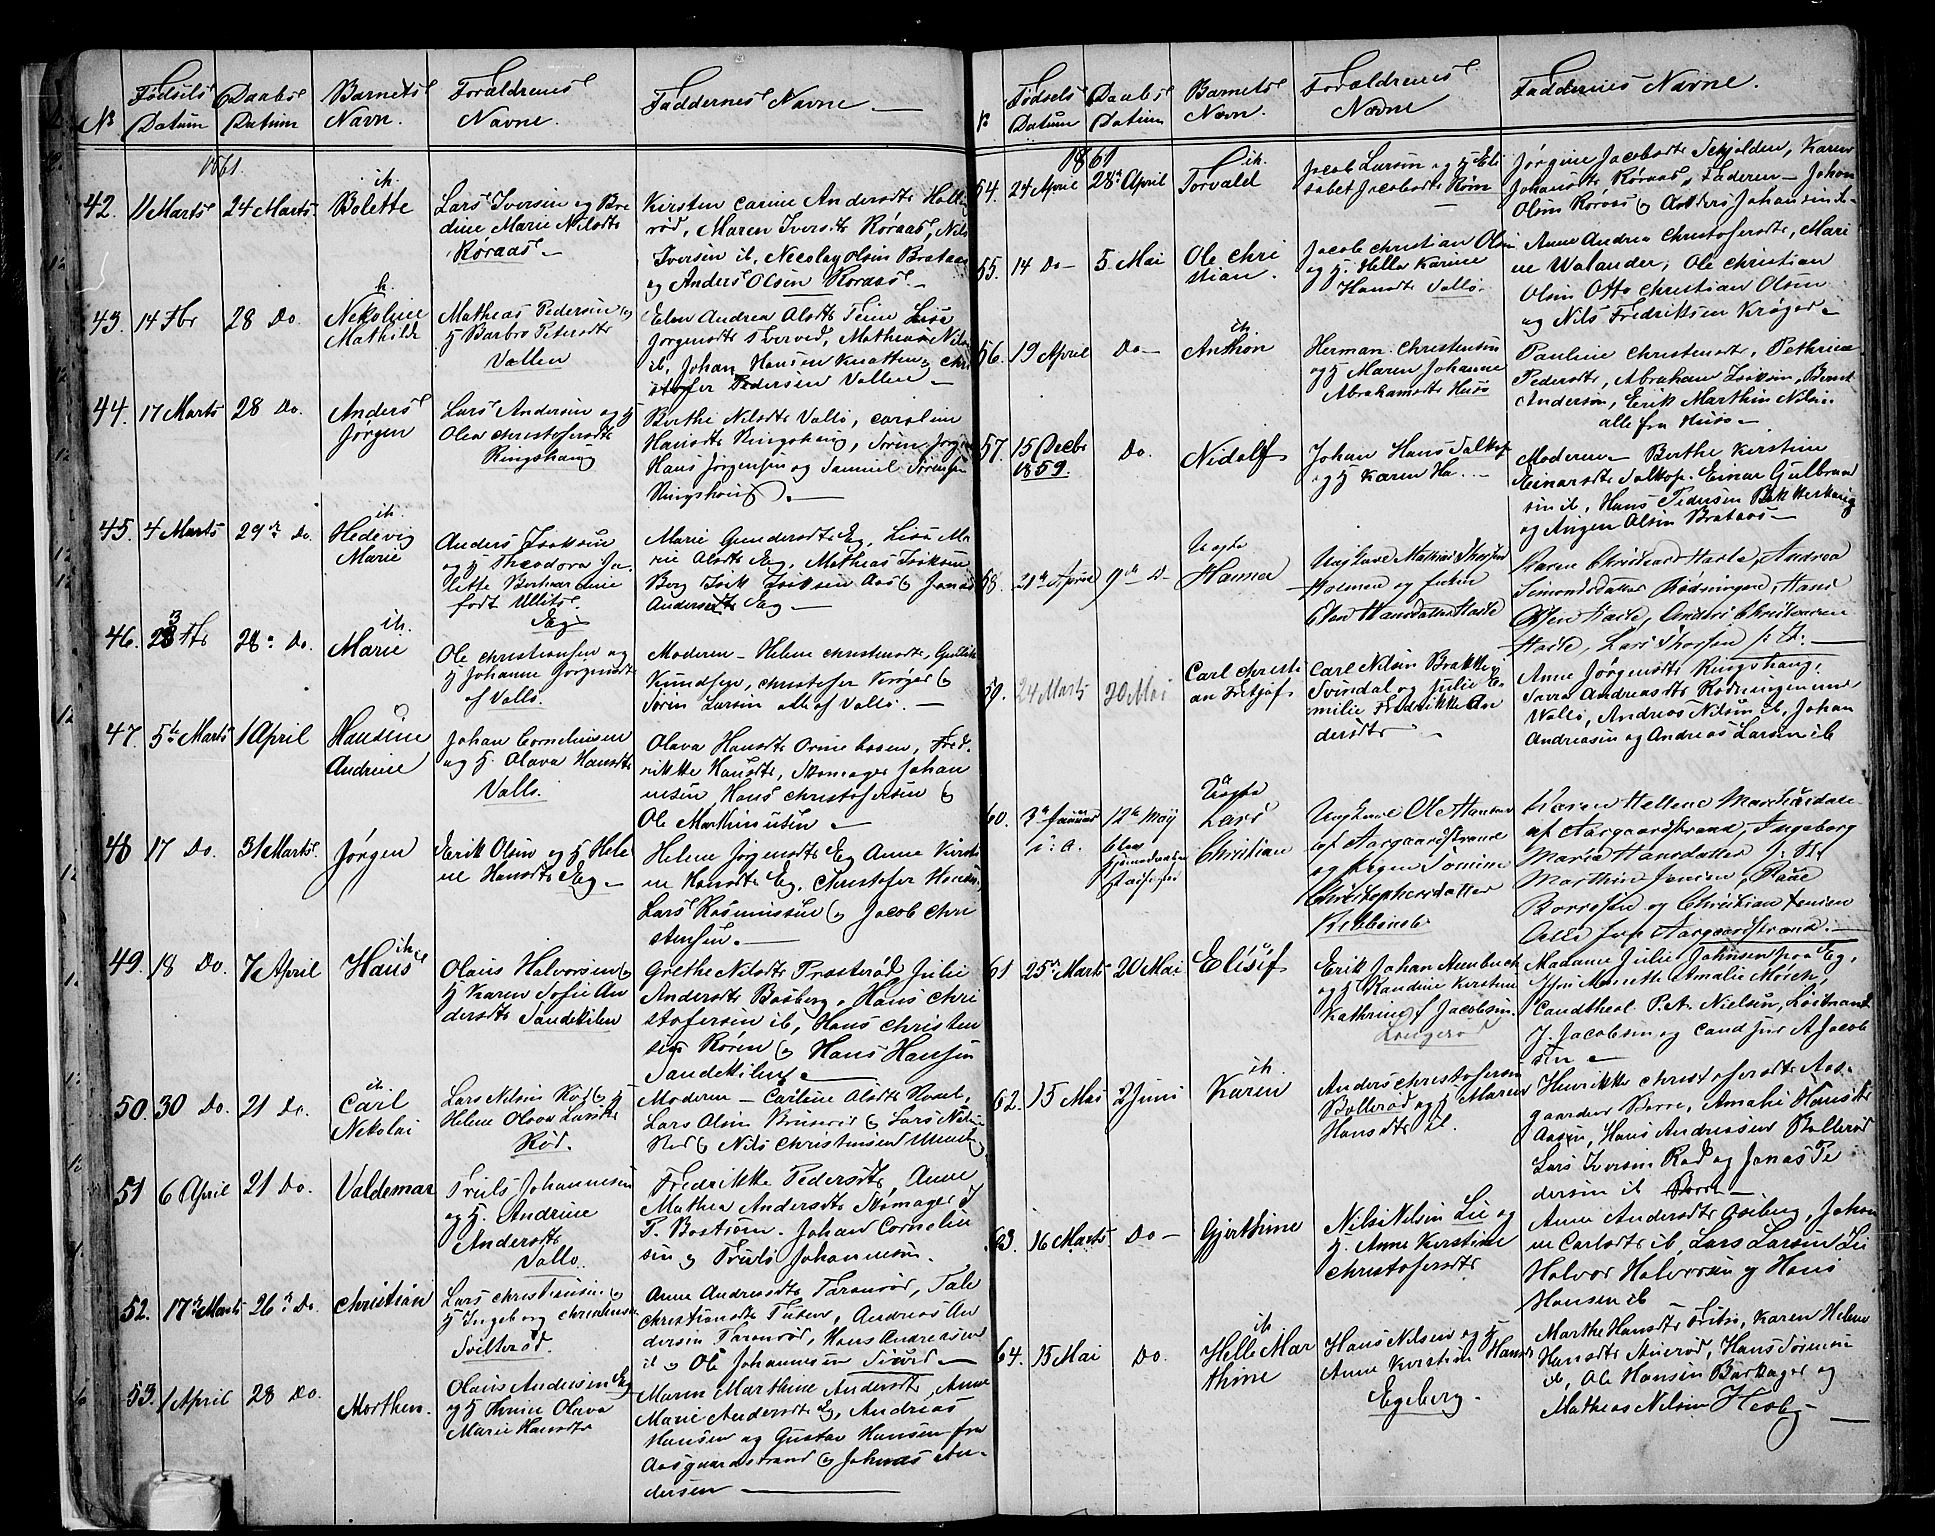 № Fødsels Datum Daabs Datum Barnets Navn. Forældrenes Navne. Faddernes Navne —
1861.
42. 11 Marts 24 Marts. ih. Bolette
Lars Iversen og Bo
dine Marie Nilsdtr
Røraas. —
Kirsten Carine Andersdtr
Maren Iversdtr Røraas, Nils
Iversen ib, Nicolay Olsen Brataas
og Anders Olsen Røraas. —
43. 14 Fbr 28 Do. h. Nekoline
Mathilde
Mathias Pedersen og
H Barbro Petersdtr
Vallen
Elen Andrea Olsdtr Teine Lise
Jørgensdtr Mathias Nils
ib, Johan Hansen Knatten og Chri
stofer Pedersen Vallen —
44. 17 Marts 28 Do. Anders
Jørgen
Lars Andersen og H
Olea Christofersdtr
Ringshaug
Berthe Nilsdtr Vallø, Caroline
Hansdtr Ringshaug, Søren Jørgen
Hans Jørgensen og Samuel Sørensen
Ringshaug. —
45. 4 Marts 29de Do. ih. Hedevig
Marie
Anders Isaksen
og H Theodora Ja
født Ullits.
Eeg
Marie Gundersdtr Eg, Lisa Ma
rie Olsdtr Eg, Mathias Isaksen
Berg Isak Isaksen Aas og Jonas
Andersen Eeg —
46. 28 Fbr 28de Do. ih. Marie
Ole Christiansen og
H Johanne Jørgensdtr
af Vallø.
Moderen — Helene Christensdtr, Gullik
Knudsen, Christofer Krøger og
Søren Larsen alle af Vallø. —
47. 5te Marts 1 April Handine
Andrine
Johan Corneliusen
og H. Olava Hansdtr
Vallø.
Olava Hansdtr Fred-
rikke Hansdtr, Skomager Johan
nesen, Hans Christofersen og
Ole Marthinussen —
48 17 Do. 31 Marts. Jørgen
Erik Olsen og H Hele
ne Hansdtr Eeg —
Helene Jørgensdtr Eg Anne Kirsti
ne Hansdtr Eg, Christofer Hansen,
Lars Rasmussen og Jacob Chri
stensen. —
49. 18 Do. 7 April ih. Hans
Olaus Halvorsen og
H Karen Sofie An
dersdtr Sandekilen
Grethe Nilsdtr Præsterød Julie
Andersdtr Basberg, Hans Chri
stofersen ib, Hans Christen
sen Røren og Hans Hansen
Sandekilen —
50. 30 Do. 21 Do. ih. Carl
Nikolai
Lars Nilsen Rød og H
Helene Olava Larsdtr
Rød.
Moderen — Carline Olsdtr
Lars Olsen Bruserød og Lars Nilsen
Rød og Nils Christensen
51 6 April 21 Do. Valdemar
Truls Johannesen
og H. Andrine
Andersdtr
Vallø.
Fredrikke Pedersdtr, Anne
Mathea Andersdtr Skomager J
P. Bostrøm. Johan Corneliu
sen og Truls Johannesen.
52. 17de Marts 26de Do. Christian
Lars Christiansen og
H Ingeborg Christensdtr
Tveiterød.
Anne Andreasdtr Taranrød, Tale
Christiansdtr Andreas An
dersen Taranrød, Hans Andreassen
ib og Ole Johannesen —
53. 1 April 28 Do. Morthen.
Olaus Andersen Eg
og H Olava
Marie Hansdtr
Maren Marthine Andersdtr, Anne
Marie Andersdtr Eg, Andreas
Hansen og Gustav Hansen fra
Aasgaardstrand og Johannes An-
dersen —
№ Fødsels Datum Daabs Datum Barnets Navn. Forældrenes Navne Faddernes Navne.
1861
54. 24 April 28de April ih. Torvald
Jacob Larsen og H Eli
sabet Jacobsdtr Røren
Jørgine Jacobsdtr Skjolden, Karen
Johansdtr Røraas, Faderen — Johan
Olsen Røraas og Anders Johansen
55. 14 Do — 5. Mai Ole Chri
stian.
Jacob Christian Olsen
og H. Helle Karine
Hansdtr Vallø.
Anne Andrea Christofersdtr, Mari
ne Walander, Ole Christian
Olsen Otto Christian Olsen
og Nils Fredriksen Krøger —
56. 19 April Do — ih. Anthon
Herman Christensen
og H Maren Johanne
Abrahamsdtr Husø
Pauline Christensdtr, Pethrine
Pedersdtr, Abraham Isaksen, Bernt
Andersen, Erik Marthin Nilsen
alle fra Husø —
57. 15 Decbr
1859. Do. Nidolf
Johan Hans Solkop
og H Karen Ha. —
Moderen — Berthe Kirstine
Einarsdtr Solkop. Einar Gulbrand
sen ib, Hans Pedersen Bakkeskaug
og Olsen Brataas —
58. 21de April 9de D — Uægte
Hanna
Ungkarl Mathias Thorsen
Holmen og Enken
Elen Hansdatter Haste
Karen Christiand. Haste, Andrea
Simonsdatter Rødningen, Hans
Olsen Haste, Anders Christensen
Haste, Lars Thorsen
59. 24 Marts 20 Mai Carl Christi
an Fritjof
Carl Nilsen Brække
Svindal og Julie E
milie Fredrikke An
dersdtr —
Anne Jørgensdtr Ringshaug,
Sara Andreasdtr Rødningen
Vallø, Andreas Nilsen ib, Johan
Andreasen og Andreas Larsen ib
60. 3de Januar
i. A. 12te May
Uægte
Lars
Christian
Ungkarl Ole Hansen
af Aargaardstrand
og Pigen
Christophersdatter
Karen Hellene
af Aargaardstrand, Ingeborg
Maria Hansdatter
Marthin Jensen,
Borresen og Christian Jensen
Alle fra Aargaardstrand. —
61 25de Marts 20 Mai Elisif
Erik Johan Aumbuch
og H Randine Kirstine
Kathrine f Jacobsen.
Madame Julie Johnsen paa Eg,
Jfr Merethe Amalie Mørch,
Candtheol. P. A. Nielsen, Løitnant
J. Jacobsen og Cand jur A Jacob
sen —
62. 15 Mai 2 Juni ih. Karen
Anders Christofersen
Bollerød og H Maren
Hansdtr ib.
Henrikke Christofersdtr Aas-
gaarden Borre, Amalie Hansdtr
Aasen, Hans Andreassen Bollerød
Lars Iversen Rød og Jonas Pe
dersen ib Borre —
63. 16 Marts. Do — Gjerthine
Nils Nilsen Lie og
H. Anne Kirstine
Christofersdtr
Anne Andersdtr Oseberg, Johan
ne Carlsdtr ib, Lars Larsen Lie
Halvor Halvorsen og Hans
Hansen ib
64. 15 Mai Do. ih. Helle Mar
thine
Hans Nilsen og H
Anne Kirstine Hansd
Egeberg.
Marthe Hansdtr Karen Helene
Hansdtr Auerød, Hans Simonsen
ib, Ole Hansen Barkager og
Mathias Nilsen Hesby —